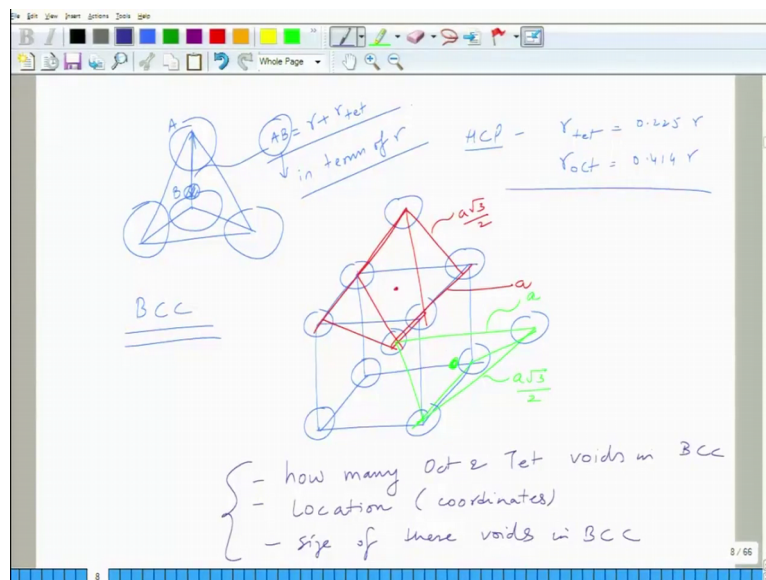 File Edit View Insert Actions Tools Help
B I
Whole Page
A
B
AB = r + r tet
in terms of r
HCP - r tet = 0.225 r
r oct = 0.414 r
BCC
a√3/2
a
a
a√3/2
- how many Oct & Tet voids in BCC
- Location (coordinates)
- size of these voids in BCC
8 / 66
8